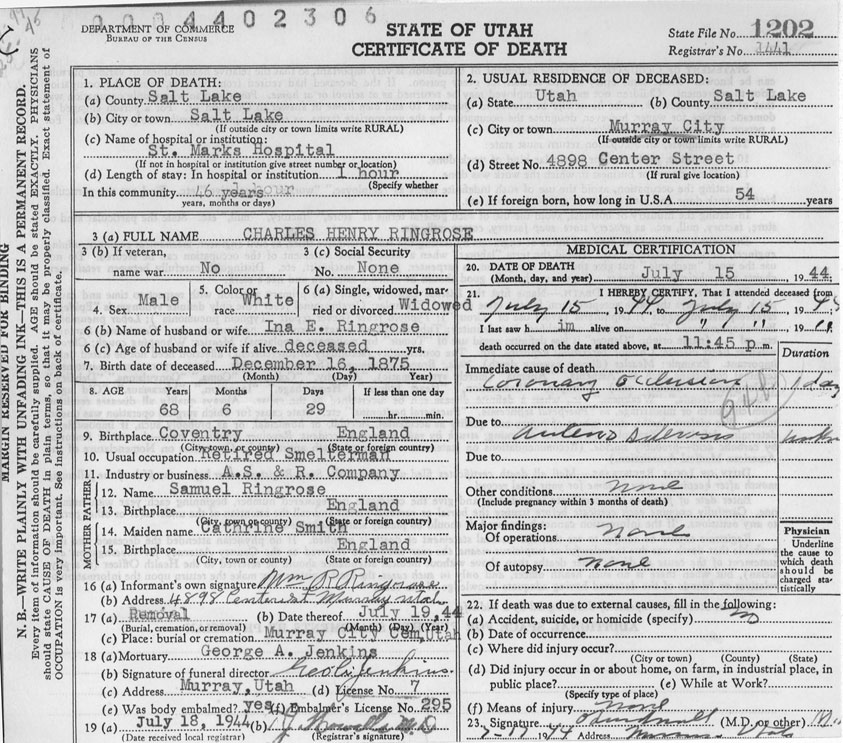 0004402306
DEPARTMENT OF COMMERCE
BUREAU OF THE CENSUS
STATE OF UTAH
CERTIFICATE OF DEATH
State File No. 1202
Registrar's No. 1441
MARGIN RESERVED FOR BINDING
N. B.—WRITE PLAINLY WITH UNFADING INK—THIS IS A PERMANENT RECORD.
Every item of information should be carefully supplied. AGE should be stated EXACTLY. PHYSICIANS
should state CAUSE OF DEATH in plain terms, so that it may be properly classified. Exact statement of
OCCUPATION is very important. See instructions on back of certificate.
1. PLACE OF DEATH:
(a) County Salt Lake
(b) City or town Salt Lake
(If outside city or town limits write RURAL)
(c) Name of hospital or institution:
St. Marks Hospital
(If not in hospital or institution give street number or location)
(d) Length of stay: In hospital or institution 1 hour
(Specify whether
In this community 46 years
years, months or days)
2. USUAL RESIDENCE OF DECEASED:
(a) State Utah (b) County Salt Lake
(c) City or town Murray City
(If outside city or town limits write RURAL)
(d) Street No. 4898 Center Street
(If rural give location)
(e) If foreign born, how long in U.S.A. 54 years
3 (a) FULL NAME CHARLES HENRY RINGROSE
3 (b) If veteran, name war No
3 (c) Social Security No. None
4. Sex Male
5. Color or race White
6 (a) Single, widowed, married or divorced Widowed
6 (b) Name of husband or wife Ina E. Ringrose
6 (c) Age of husband or wife if alive deceased yrs.
7. Birth date of deceased December 16, 1875
(Month) (Day) (Year)
8. AGE Years Months Days If less than one day
68 6 29 hr. min.
9. Birthplace Coventry England
(City, town, or county) (State or foreign country)
10. Usual occupation Retired Smelterman
11. Industry or business A.S. & R. Company
FATHER
12. Name Samuel Ringrose
13. Birthplace England
(City, town or county) (State or foreign country)
MOTHER
14. Maiden name Cathrine Smith
15. Birthplace England
(City, town, or county) (State or foreign country)
16 (a) Informant's own signature Wm R Ringrose
(b) Address 4898 Center St Murray Utah
17 (a) Removal (b) Date thereof July 19, 44
(Burial, cremation, or removal) (Month) (Day) (Year)
(c) Place: burial or cremation Murray City Cem, Utah
18 (a) Mortuary George A. Jenkins
(b) Signature of funeral director Geo A Jenkins
(c) Address Murray, Utah (d) License No. 7
(e) Was body embalmed? yes (f) Embalmer's License No. 295
19 (a) July 18, 1944 (b) M.D.
(Date received local registrar) (Registrar's signature)
MEDICAL CERTIFICATION
20. DATE OF DEATH
(Month, day, and year) July 15 1944
21. I HEREBY CERTIFY, That I attended deceased from
July 15, 1944 to July 15 194
I last saw h im alive on " " 19 "
death occurred on the date stated above, at 11:45 p m.
Duration
Immediate cause of death
Coronary occlusion 1 day
94a
Due to
Due to
Other conditions none
(Include pregnancy within 3 months of death)
Major findings:
Of operations none
Of autopsy none
Physician
Underline
the cause to
which death
should be
charged sta-
tistically
22. If death was due to external causes, fill in the following:
(a) Accident, suicide, or homicide (specify) no
(b) Date of occurrence
(c) Where did injury occur?
(City or town) (County) (State)
(d) Did injury occur in or about home, on farm, in industrial place, in
public place? (e) While at Work?
(Specify type of place)
(f) Means of injury none
23. Signature (M.D. or other)
7-17 1944 Address Murray Utah